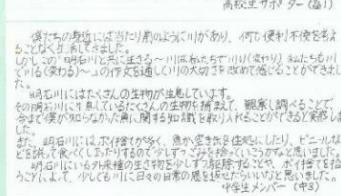 高校生サポーター(高1)
僕たちの身近には当たり前のように川があり、何て便利不便を考え
ることなく生活してきました。
しかしこの「明石川と共に生きる〜川は私たちで川る(変わる)私たちも川
で川る(変わる)〜」の作文を通して川の大切さを改めて感じることができまし
た。
明石川にはたくさんの生物が生息しています。
その明石川に生息しているたくさんの生物を捕まえて、観察し調べることで、
今まで僕が知らなかった角に関する知識を取り入れることができると実感しま
した。
また、明石川には、ポイ捨てが多く、魚が空き缶を住処にしたり、ビニールな
どを誤って食べてしまったりするので少しずつごみを拾っていこうかなと思いました。
明石川にいる外来種の生き物を少しずつ駆除することや、ポイ捨てを拾
うことによって、少しでも川に日々の日常の恩を返せたらいいなと思いました。
中学生メンバー(中3)